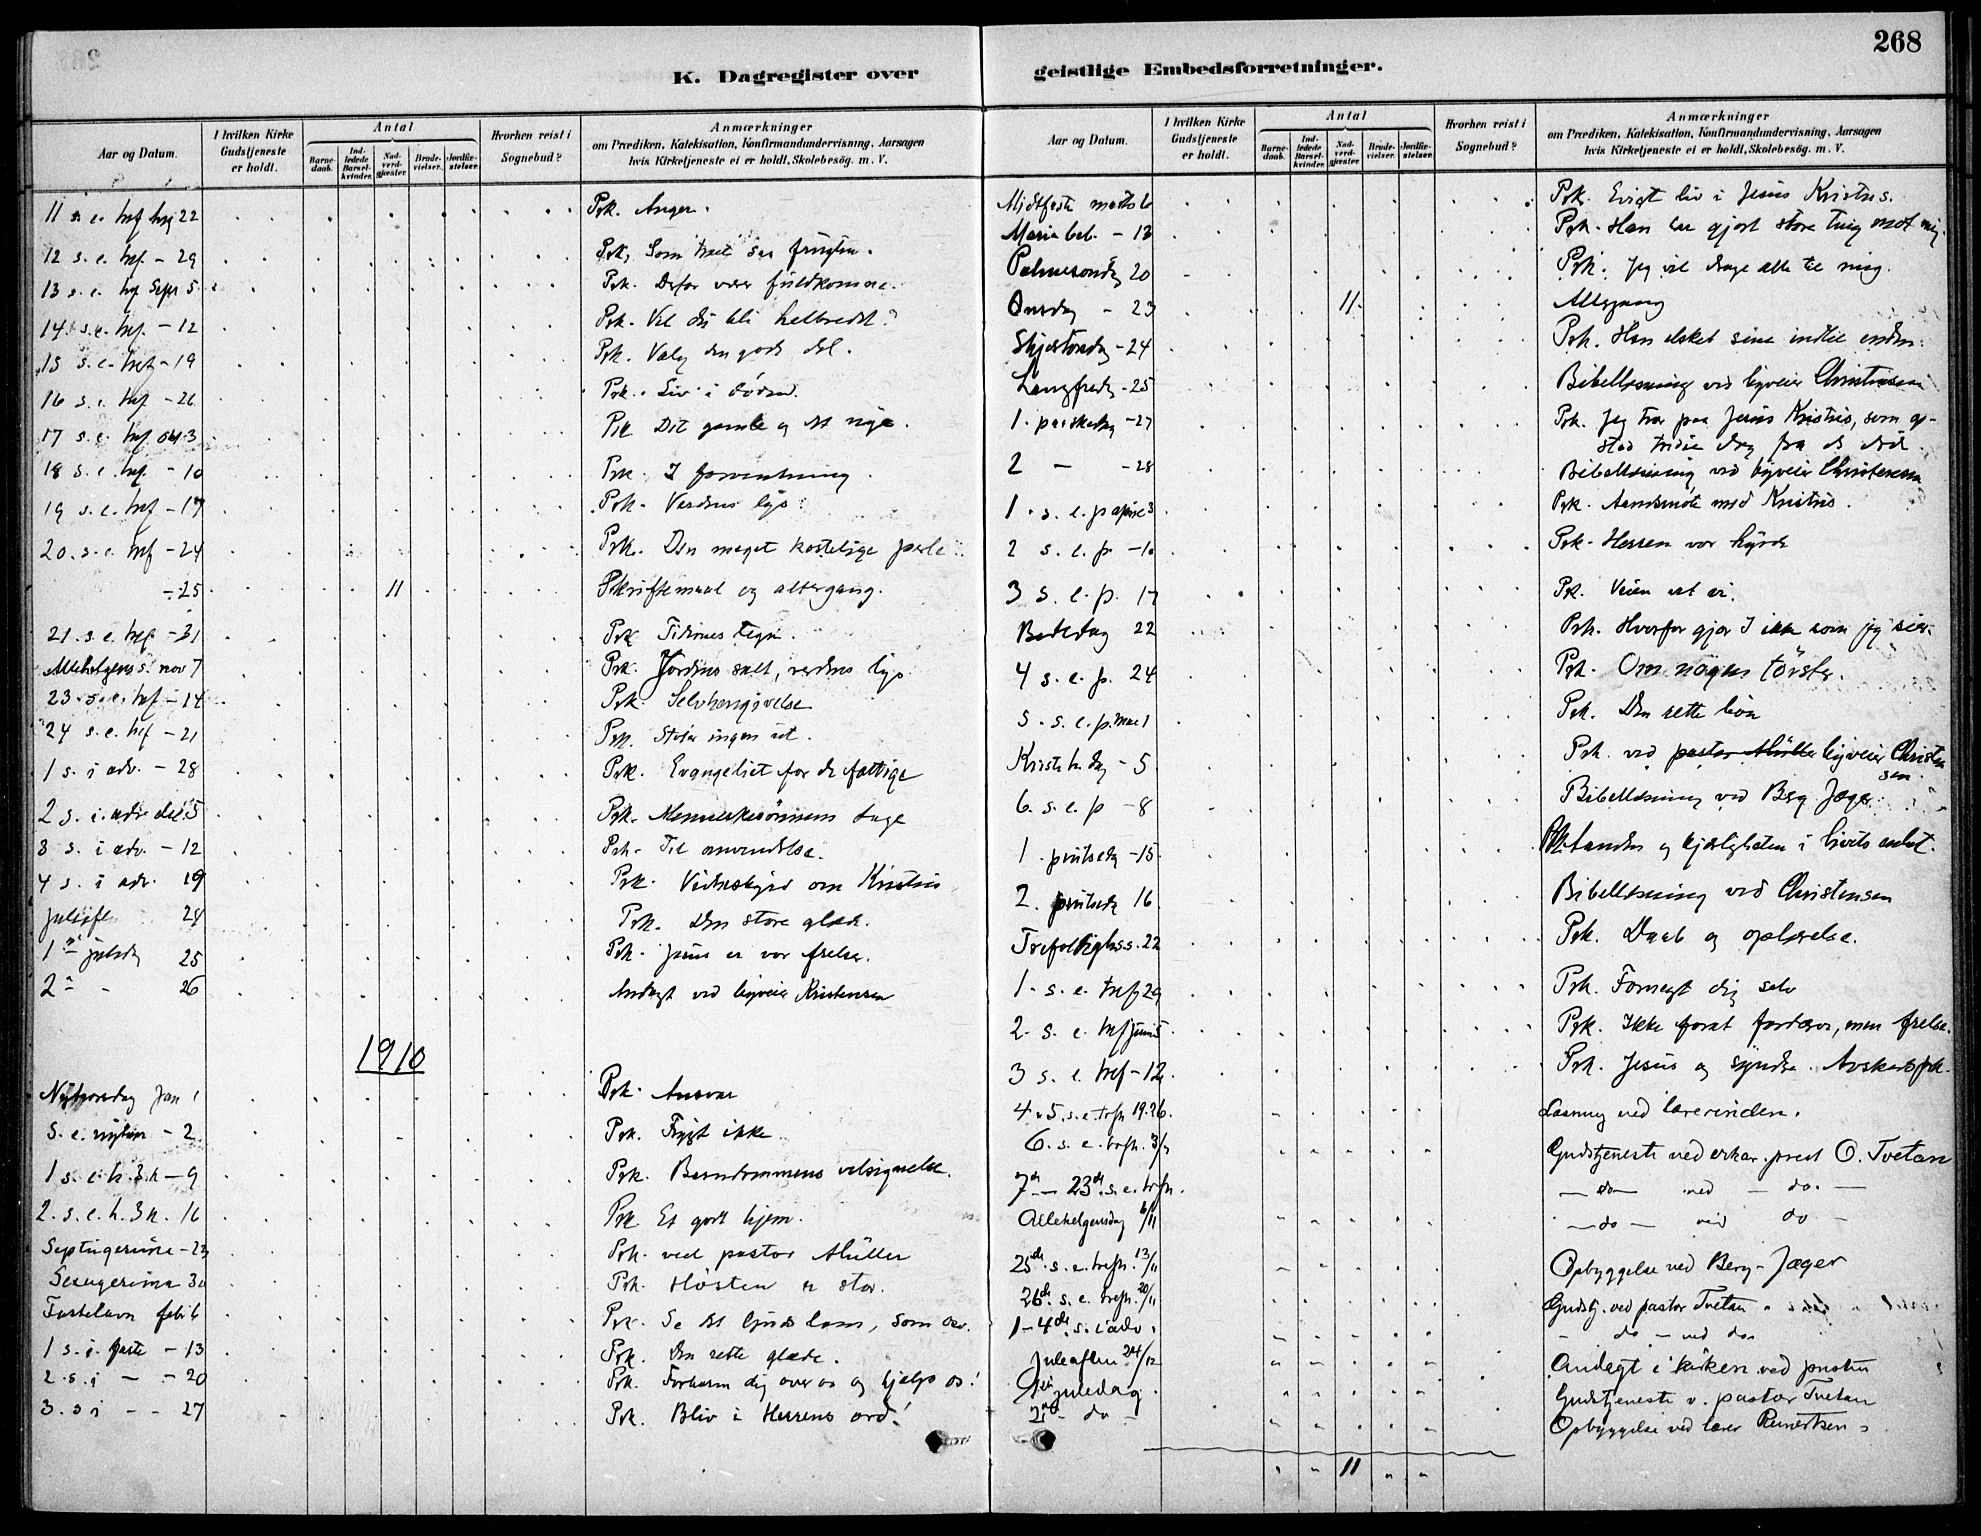 268
K. Dagregister over
geistlige Embedsforretninger.
Aar og Datum.
I hvilken Kirke Gudstjeneste er holdt.
Antal
Barne-daab.
Ind-ledede Barsel-kvinder.
Nad-verd-gjæster.
Brude-vielser.
Jordfæ-stelser.
Hvorhen reist i Sognebud?
Anmærkninger
om Prædiken, Katekisation, Konfirmandundervisning, Aarsagen
hvis Kirketjeneste ei er holdt, Skolebesøg. m. V.
11 s. e. tref. 22 Prk. Anger.
12 s. e. tref. - 29 Prk. Som træet saa frugten.
13 s. e. tref Sept 5 Prk. Derfor vær fuldkomne.
14 s. e. tref. - 12 Prk. Vil du bli helbredet?
15 s. e. tref - 19 Prk. Vælg den gode del.
16 s. e. tref - 26 Prk. Liv i døden.
17 s. e. tref. okt. 3 Prk. Det gamle og det nye.
18 s. e. tref. - 10 Prk. I forventning.
19 s. e. tref - 17 Prk. Verdens lys.
20. s. e. tref - 24 Prk. Den meget kostelige perle
- 25 11 Skriftemaal og altergang.
21. s. e. tref. - 31 Prk. Tidernes tegn.
Allehelgens s. nov 7 Prk. Jordens salt, verdens lys
23. s. e. tref - 14 Prk. Selvhengivelse
24 s. e. tref - 21 Prk. Støter ingen ut.
1 s. i adv. - 28 Prk. Evangeliet for de fattige
2 s. i. adv dec. 5 Prk. Menneskesønnens dage
3 s. i adv. - 12 Prk. Til omvendelse.
4 s. i adv. 19 Prk. Vidnesbyrd om Kristus
Juleaft. 24 Prk. Den store glæde.
1ste juledag 25 Prk. Jesus er vor frelser.
2 - - 26 Andagt ved byveier Kristensen
1910
Nytaarsdag Jan 1 Prk. Ansvar
S. e. nytaar - 2 Prk. Frygt ikke
1 s. e. h. 3 k - 9 Prk. Barndommens velsignelse.
2. s. e. h. 3 k. 16 Prk. Et godt hjem.
Septuagesima - 23 Prk. ved pastor Müller
Sexagesima 30 Prk. Høsten er stor.
Fastelavn feb. 6 Prk. Se det Guds lam, som bær.
1 s. i. faste - 13 Prk. Den rette glæde.
2. s. i - - 20 Prk. Forbarm dig over os og hjælp os!
3. s i - - 27 Prk. Bliv i Herrens ord!
Aar og Datum.
I hvilken Kirke Gudstjeneste er holdt.
Antal
Barne-daab.
Ind-ledede Barsel-kvinder.
Nad-verd-gjæster.
Brude-vielser.
Jordfæ-stelser.
Hvorhen reist i Sognebud?
Anmærkninger
om Prædiken, Katekisation, Konfirmandundervisning, Aarsagen
hvis Kirketjeneste ei er holdt, Skolebesøg. m. V.
Midtfaste marts 6 Prk. Evigt liv i Jesus Kristus.
Maria beb. - 13 Prk. Han har gjort store ting mot mig.
Palmesøndg 20 Prk. Jeg vil drage alle til mig.
Onsdag - 23 11 Altergang
Skjærtorsdag - 24 Prk. Han elsket sine indtil enden.
Langfredg - 25 Bibellæsning ved byveier Christensen
1. paaskedag - 27 Prk. Jeg tror paa Jesus Kristus, som op-
stod tredie dag fra de døde
2 - - 28 Bibellæsning ved byveier Christensen
1. s. e. p april 3 Prk. Aandsmøte med Kristus.
2 s. e. p - 10 Prk. Herren vor hyrde
3 s. e. p. 17 Prk. Veien vet vi.
Bededag 22 Prk. Hvorfor gjør I ikke som jeg sier.
4 s. e. p. 24 Prk. Om nogen tørster.
5. s. e. p. mai 1 Prk. Den rette bøn
Kristi h. dg - 5 Prk. ved pastor Müller byveier Christen
sen.
6. s. e. p - 8 Bibellæsning ved Berg Jæger
1. pintsedg - 15 Prk. Aanden og kjærligheten i livets enhet.
2. pintsedg 16 Bibellæsning ved Christensen
Trefoldighs. s. 22 Prk. Daab og oplærelse.
1. s. e. tref 29 Prk. Fornegt dig selv
2. s. e. tref juni 5 Prk. Ikke for at fordærve, men frelse.
3 s. e. tref - 12 Prk. Jesus og synderen. Avskedsprk.
4 & 5. s. e. trfh. 19. 26. Læsning ved lærerinden.
6. s. e. trfh. 3/7 Gudstjeneste ved erkar. prest O. Tvetan
7de - 23de s. e. trfh. - do - ved - do. -
Allehelgensdag 6/11 - do - ved do -
25de s. e. trefh. 13/11 Opbyggelse ved Berg-Jæger
26de s. e. trefh. 20/11 Gudstj. ved pastor Tvetan
1 - 4de s. i adv. - do - ved do
Juleaften 24/12 Andagt i kirken ved presten
1ste juledag. Gudstjeneste v. pastor Tvetan
2den - do - Opbyggelse ved lærer
11